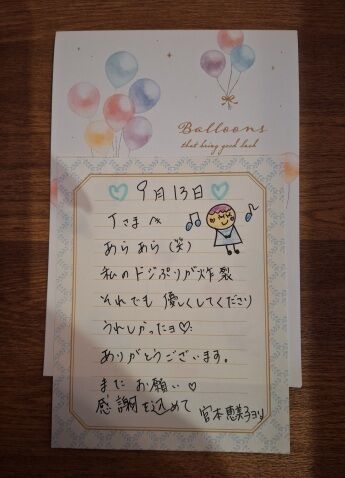 Balloons
that bring good luck
9月13日
Tさまへ
あらあら(笑)
私のドジぶりが炸裂
それでも優しくしてくださり
うれしかったヨ♡
ありがとうございます。
またお願い♡
感謝を込めて
宮本恵美子ヨリ